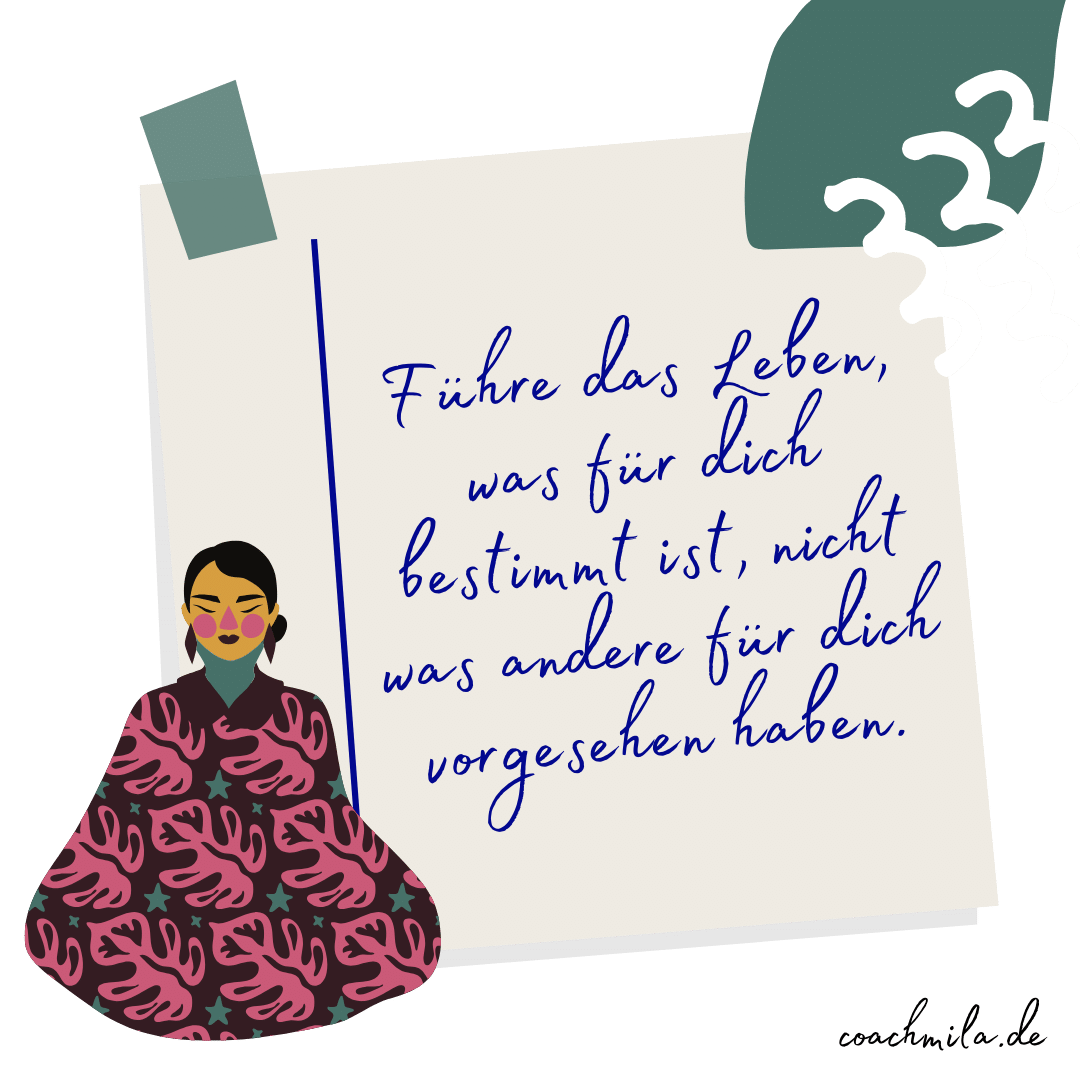 Führe das Leben,
was für dich
bestimmt ist, nicht
was andere für dich
vorgesehen haben.
coachmila.de